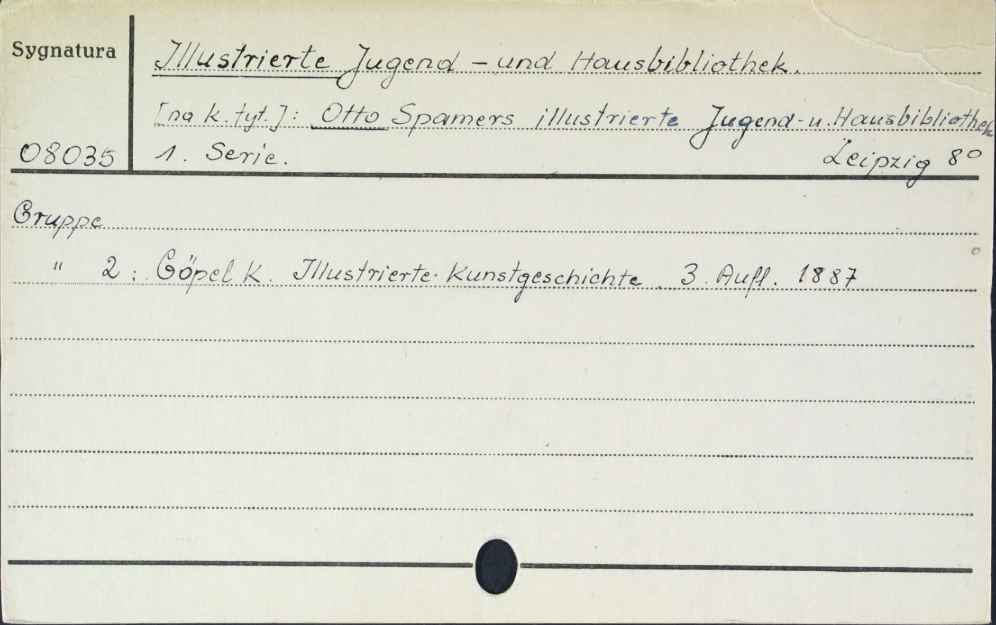 Sygnatura
Illustrierte Jugend - und Hausbibliothek.
[na k. tyt.]: Otto Spamers illustrierte Jugend-u. Hausbibliothek
08035 1. Serie. Leipzig 8°
Gruppe
" 2: Göpel K. Illustrierte Kunstgeschichte. 3. Aufl. 1887